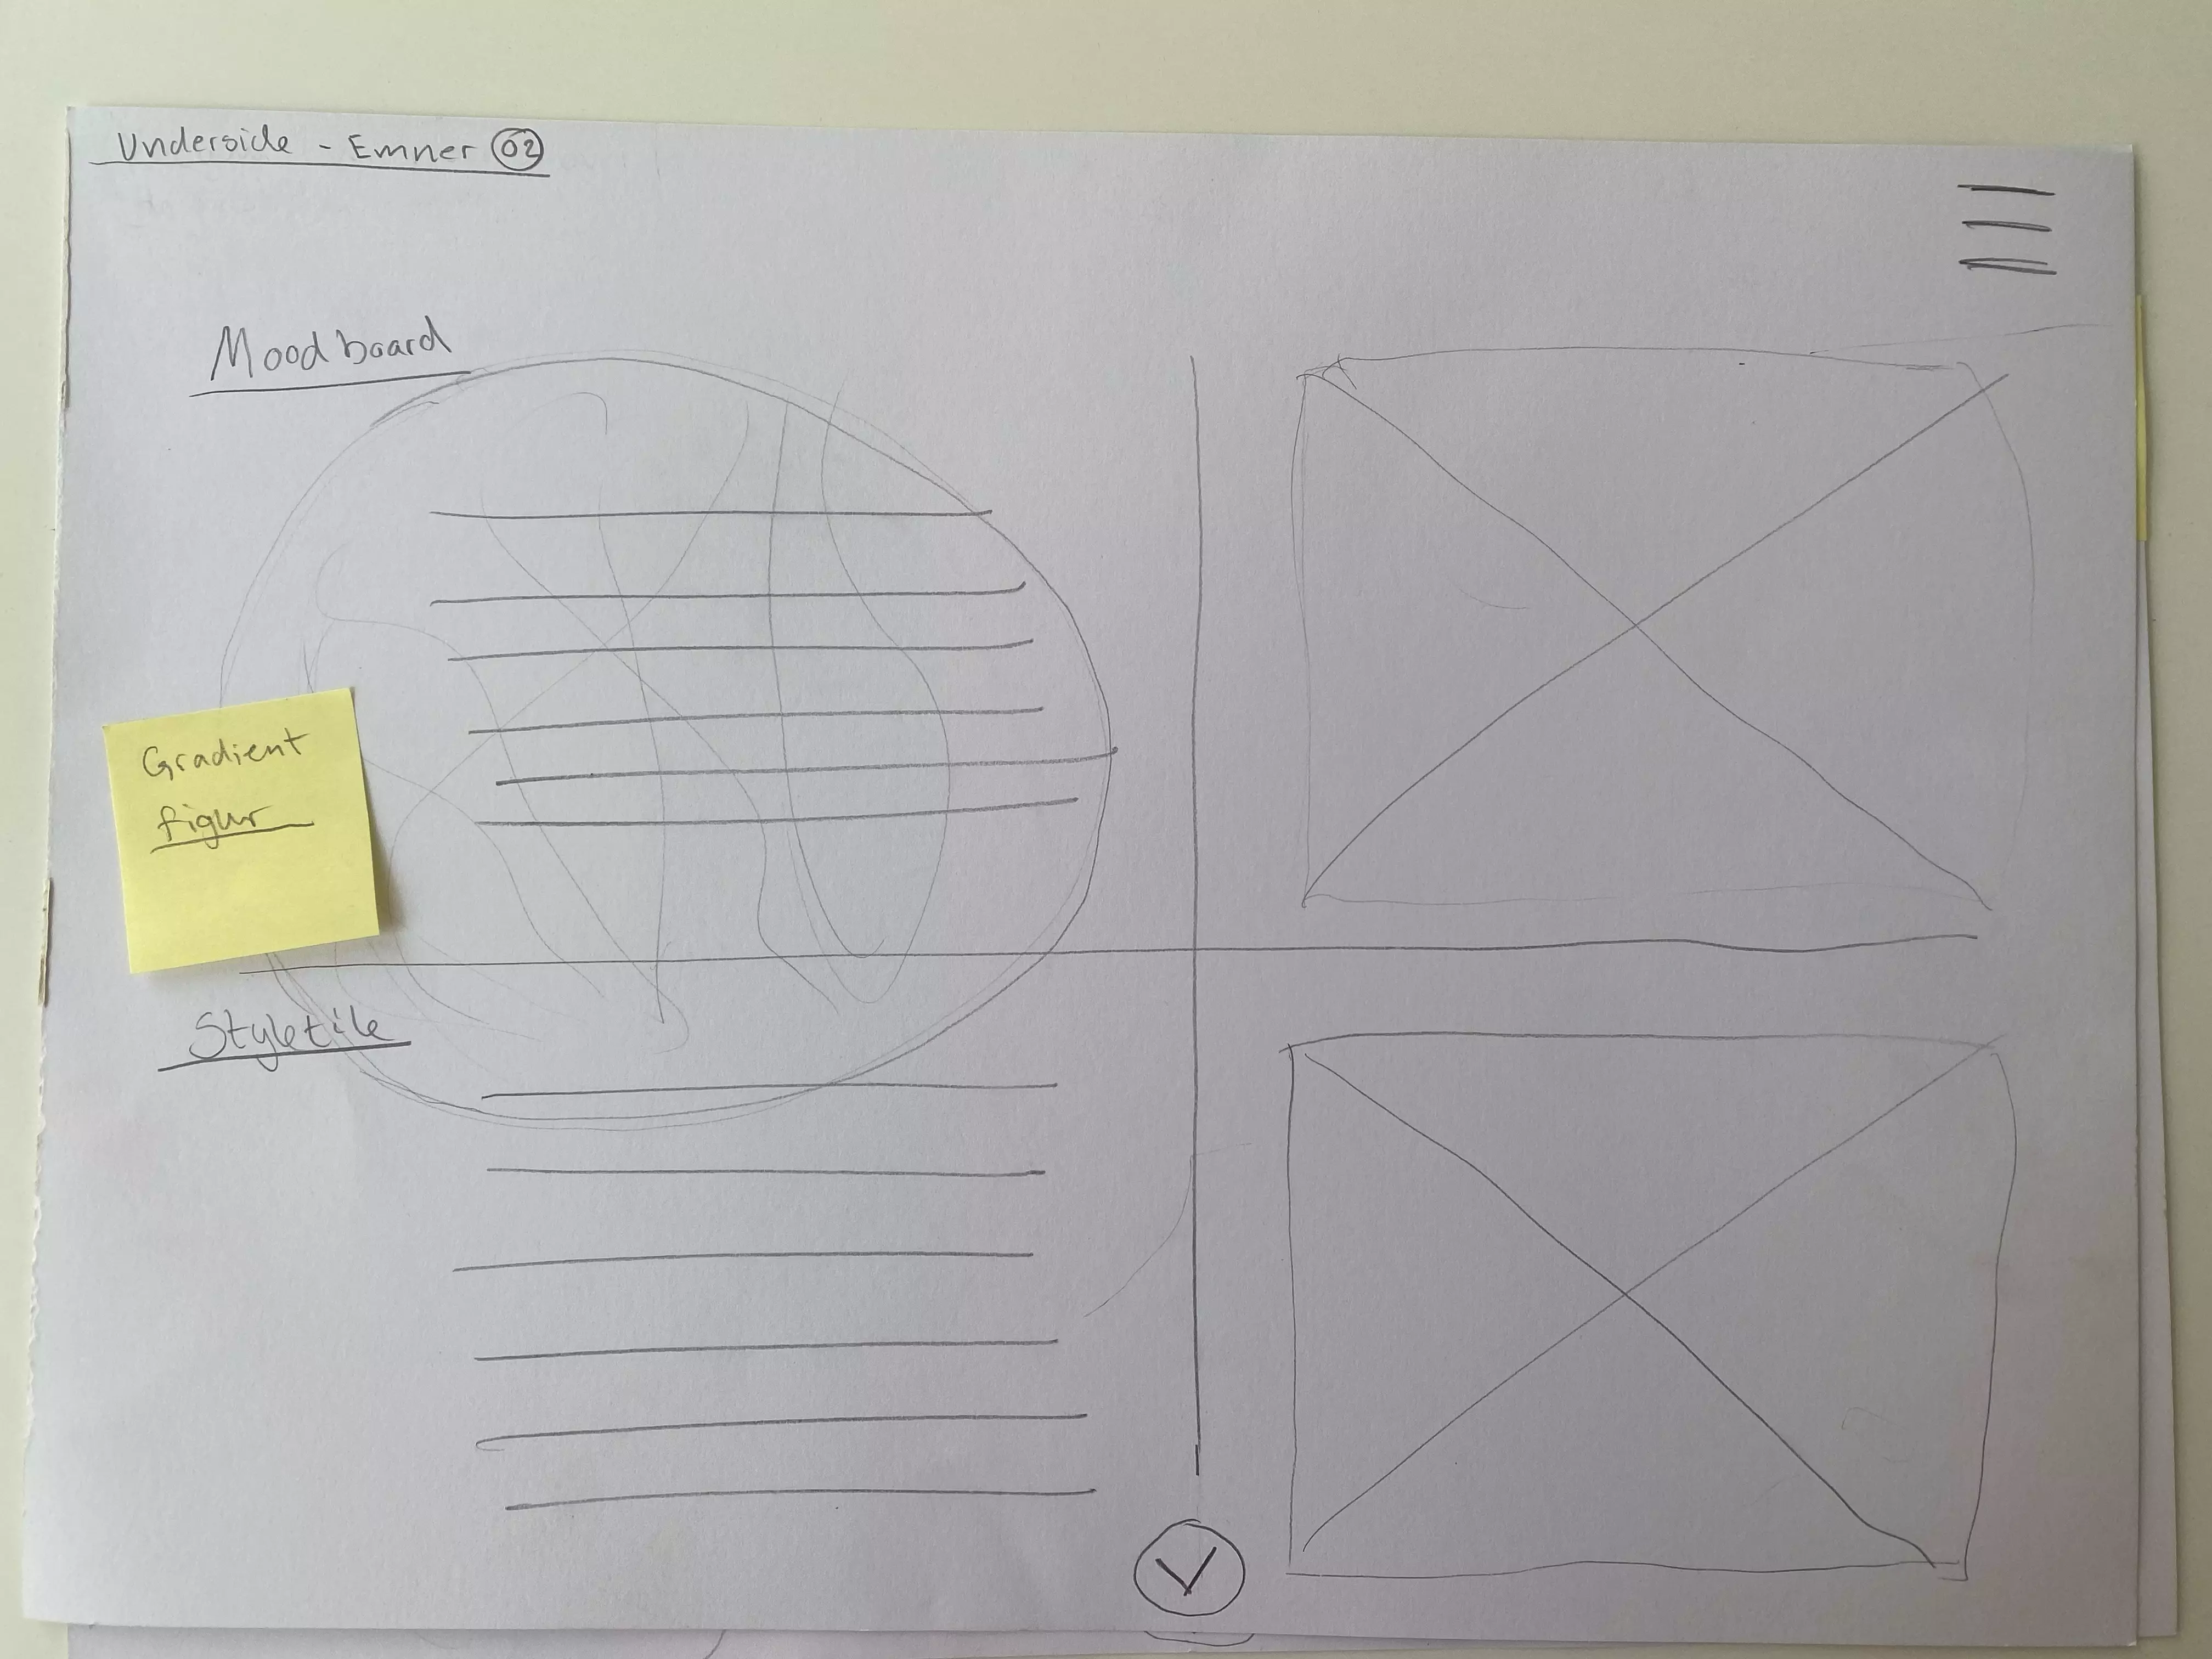 Underside - Emner 02
Moodboard
Gradient
figur
Styletile